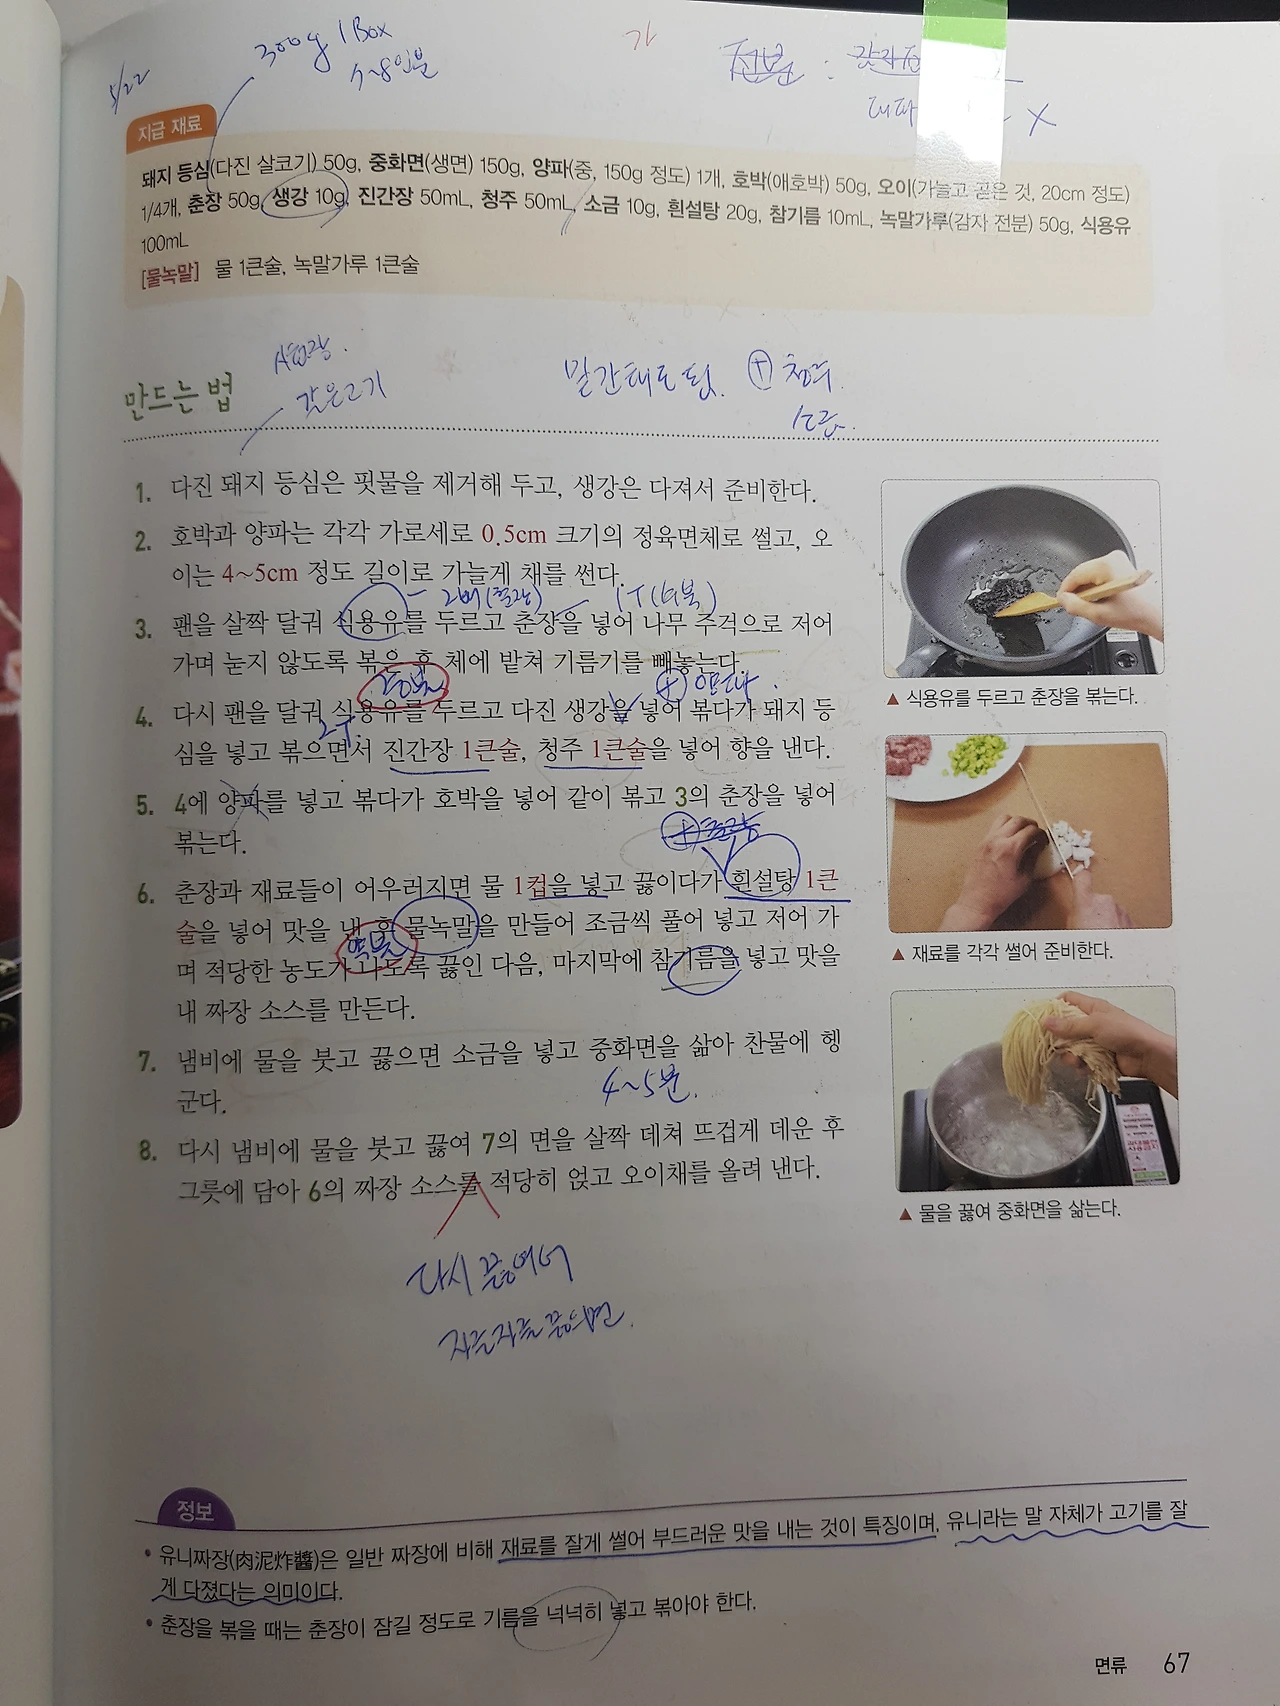 5/22
300g 1Box
전분 :
X
지급 재료
돼지 등심(다진 살코기) 50g, 중화면(생면) 150g, 양파(중, 150g 정도) 1개, 호박(애호박) 50g, 오이(가늘고 곧은 것, 20cm 정도)
1/4개, 춘장 50g, 생강 10g, 진간장 50mL, 청주 50mL, 소금 10g, 흰설탕 20g, 참기름 10mL, 녹말가루(감자 전분) 50g, 식용유
100mL
[물녹말] 물 1큰술, 녹말가루 1큰술
갈은고기
⊕ 청주
만드는 법
1. 다진 돼지 등심은 핏물을 제거해 두고, 생강은 다져서 준비한다.
2. 호박과 양파는 각각 가로세로 0.5cm 크기의 정육면체로 썰고, 오
이는 4~5cm 정도 길이로 가늘게 채를 썬다.
2배(춘장)
3. 팬을 살짝 달궈 식용유를 두르고 춘장을 넣어 나무 주걱으로 저어
가며 눋지 않도록 볶은 후 체에 밭쳐 기름기를 빼놓는다.
⊕
2T.
4. 다시 팬을 달궈 식용유를 두르고 다진 생강을 넣어 볶다가 돼지 등
심을 넣고 볶으면서 진간장 1큰술, 청주 1큰술을 넣어 향을 낸다.
5. 4에 양파를 넣고 볶다가 호박을 넣어 같이 볶고 3의 춘장을 넣어
볶는다.
6. 춘장과 재료들이 어우러지면 물 1컵을 넣고 끓이다가 흰설탕 1큰
술을 넣어 맛을 낸 후 물녹말을 만들어 조금씩 풀어 넣고 저어 가
며 적당한 농도가 나도록 끓인 다음, 마지막에 참기름을 넣고 맛을
내 짜장 소스를 만든다.
7. 냄비에 물을 붓고 끓으면 소금을 넣고 중화면을 삶아 찬물에 헹
군다.
4~5분.
8. 다시 냄비에 물을 붓고 끓여 7의 면을 살짝 데쳐 뜨겁게 데운 후
그릇에 담아 6의 짜장 소스를 적당히 얹고 오이채를 올려 낸다.
다시 끓여서
자글자글 끓으면.
▲ 식용유를 두르고 춘장을 볶는다.
▲ 재료를 각각 썰어 준비한다.
▲ 물을 끓여 중화면을 삶는다.
정보
• 유니짜장(肉泥炸醬)은 일반 짜장에 비해 재료를 잘게 썰어 부드러운 맛을 내는 것이 특징이며, 유니라는 말 자체가 고기를 잘
게 다졌다는 의미이다.
• 춘장을 볶을 때는 춘장이 잠길 정도로 기름을 넉넉히 넣고 볶아야 한다.
면류 67